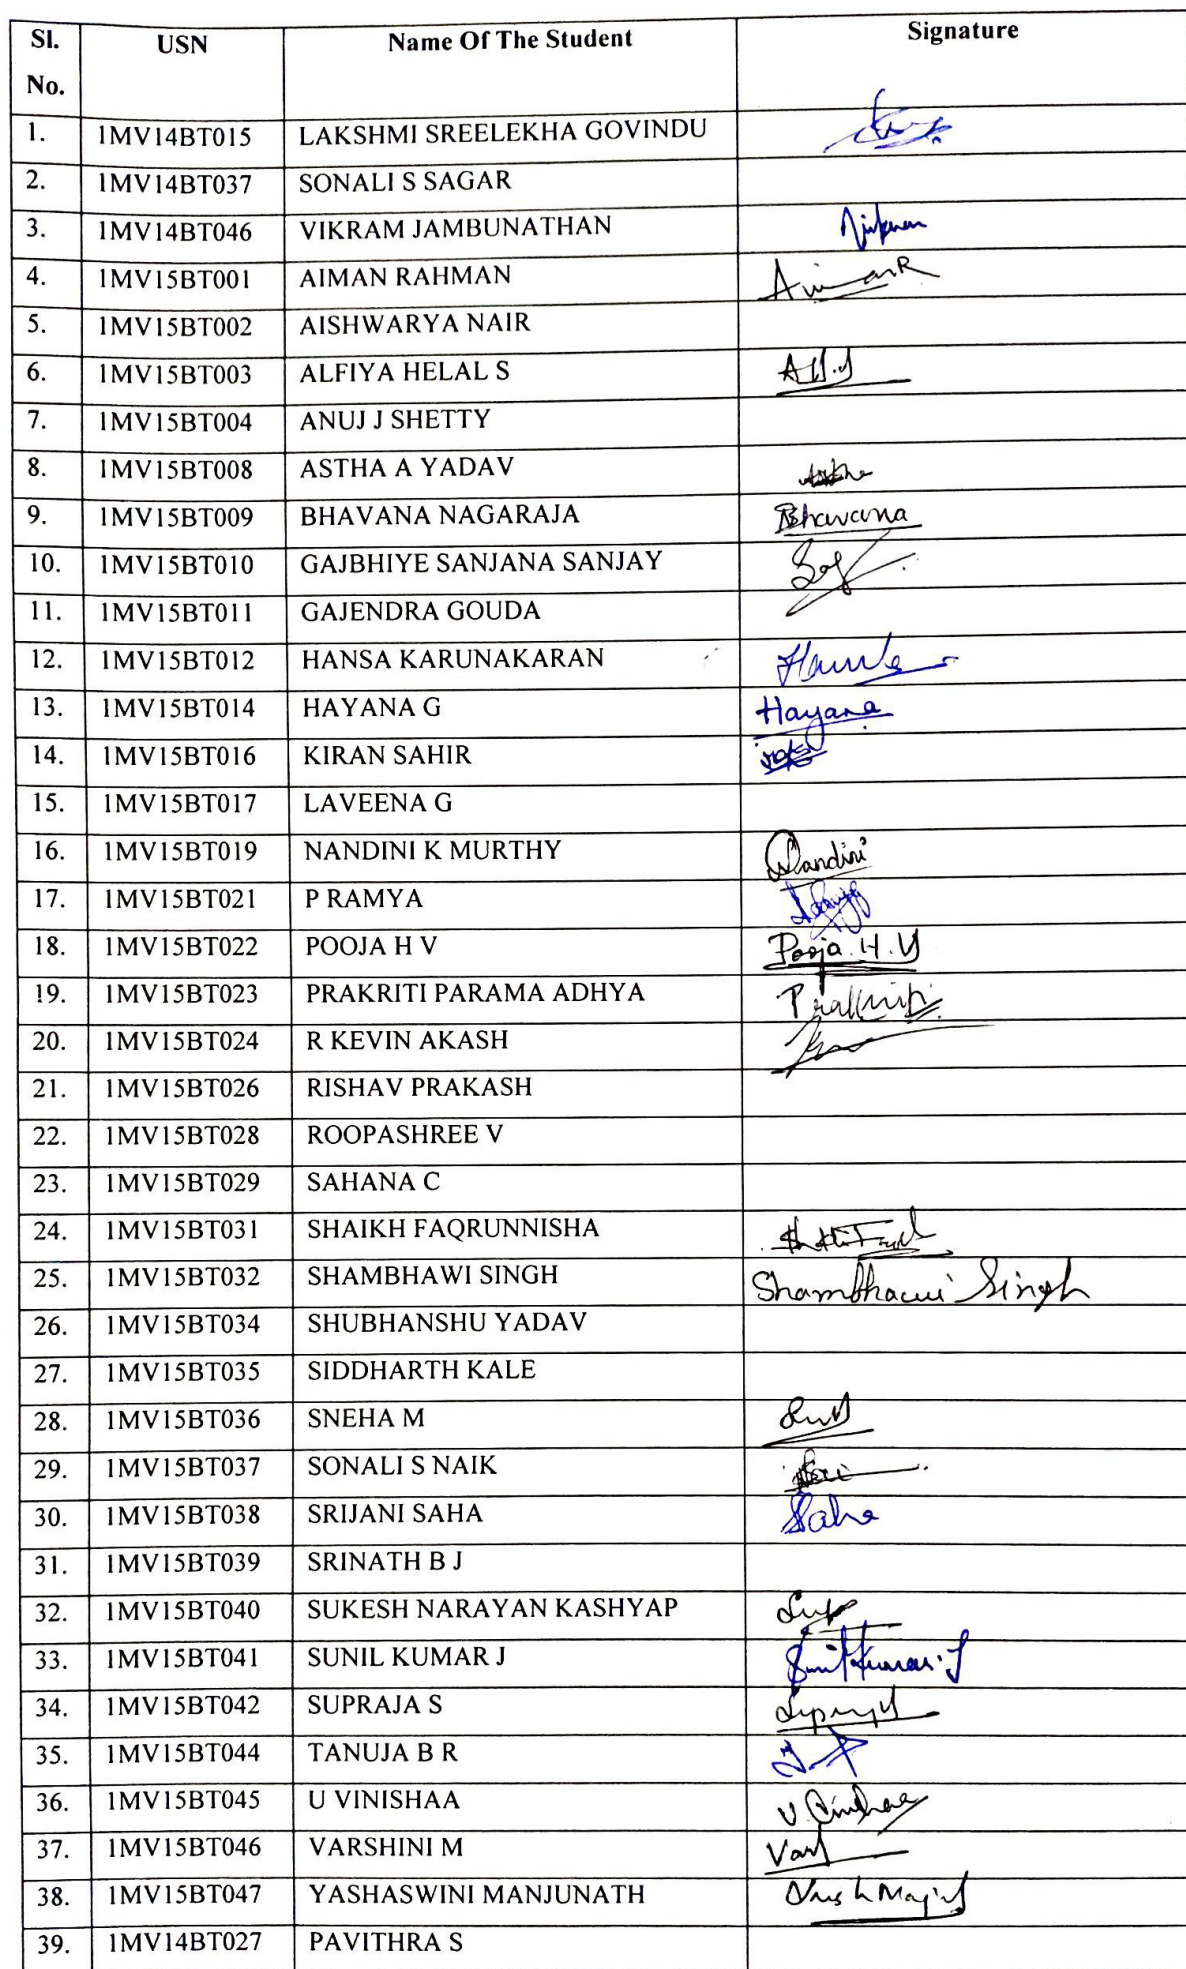 Sl. No. USN Name Of The Student Signature
1. 1MV14BT015 LAKSHMI SREELEKHA GOVINDU
2. 1MV14BT037 SONALI S SAGAR
3. 1MV14BT046 VIKRAM JAMBUNATHAN
4. 1MV15BT001 AIMAN RAHMAN AimanR
5. 1MV15BT002 AISHWARYA NAIR
6. 1MV15BT003 ALFIYA HELAL S
7. 1MV15BT004 ANUJ J SHETTY
8. 1MV15BT008 ASTHA A YADAV
9. 1MV15BT009 BHAVANA NAGARAJA Bhavana
10. 1MV15BT010 GAJBHIYE SANJANA SANJAY
11. 1MV15BT011 GAJENDRA GOUDA
12. 1MV15BT012 HANSA KARUNAKARAN
13. 1MV15BT014 HAYANA G Hayana
14. 1MV15BT016 KIRAN SAHIR
15. 1MV15BT017 LAVEENA G
16. 1MV15BT019 NANDINI K MURTHY Nandini
17. 1MV15BT021 P RAMYA
18. 1MV15BT022 POOJA H V Pooja.H.V
19. 1MV15BT023 PRAKRITI PARAMA ADHYA Prakriti
20. 1MV15BT024 R KEVIN AKASH
21. 1MV15BT026 RISHAV PRAKASH
22. 1MV15BT028 ROOPASHREE V
23. 1MV15BT029 SAHANA C
24. 1MV15BT031 SHAIKH FAQRUNNISHA
25. 1MV15BT032 SHAMBHAWI SINGH Shambhawi Singh
26. 1MV15BT034 SHUBHANSHU YADAV
27. 1MV15BT035 SIDDHARTH KALE
28. 1MV15BT036 SNEHA M
29. 1MV15BT037 SONALI S NAIK
30. 1MV15BT038 SRIJANI SAHA Saha
31. 1MV15BT039 SRINATH B J
32. 1MV15BT040 SUKESH NARAYAN KASHYAP
33. 1MV15BT041 SUNIL KUMAR J Sunil Kumar.J
34. 1MV15BT042 SUPRAJA S
35. 1MV15BT044 TANUJA B R
36. 1MV15BT045 U VINISHAA U Vinishaa
37. 1MV15BT046 VARSHINI M
38. 1MV15BT047 YASHASWINI MANJUNATH
39. 1MV14BT027 PAVITHRA S